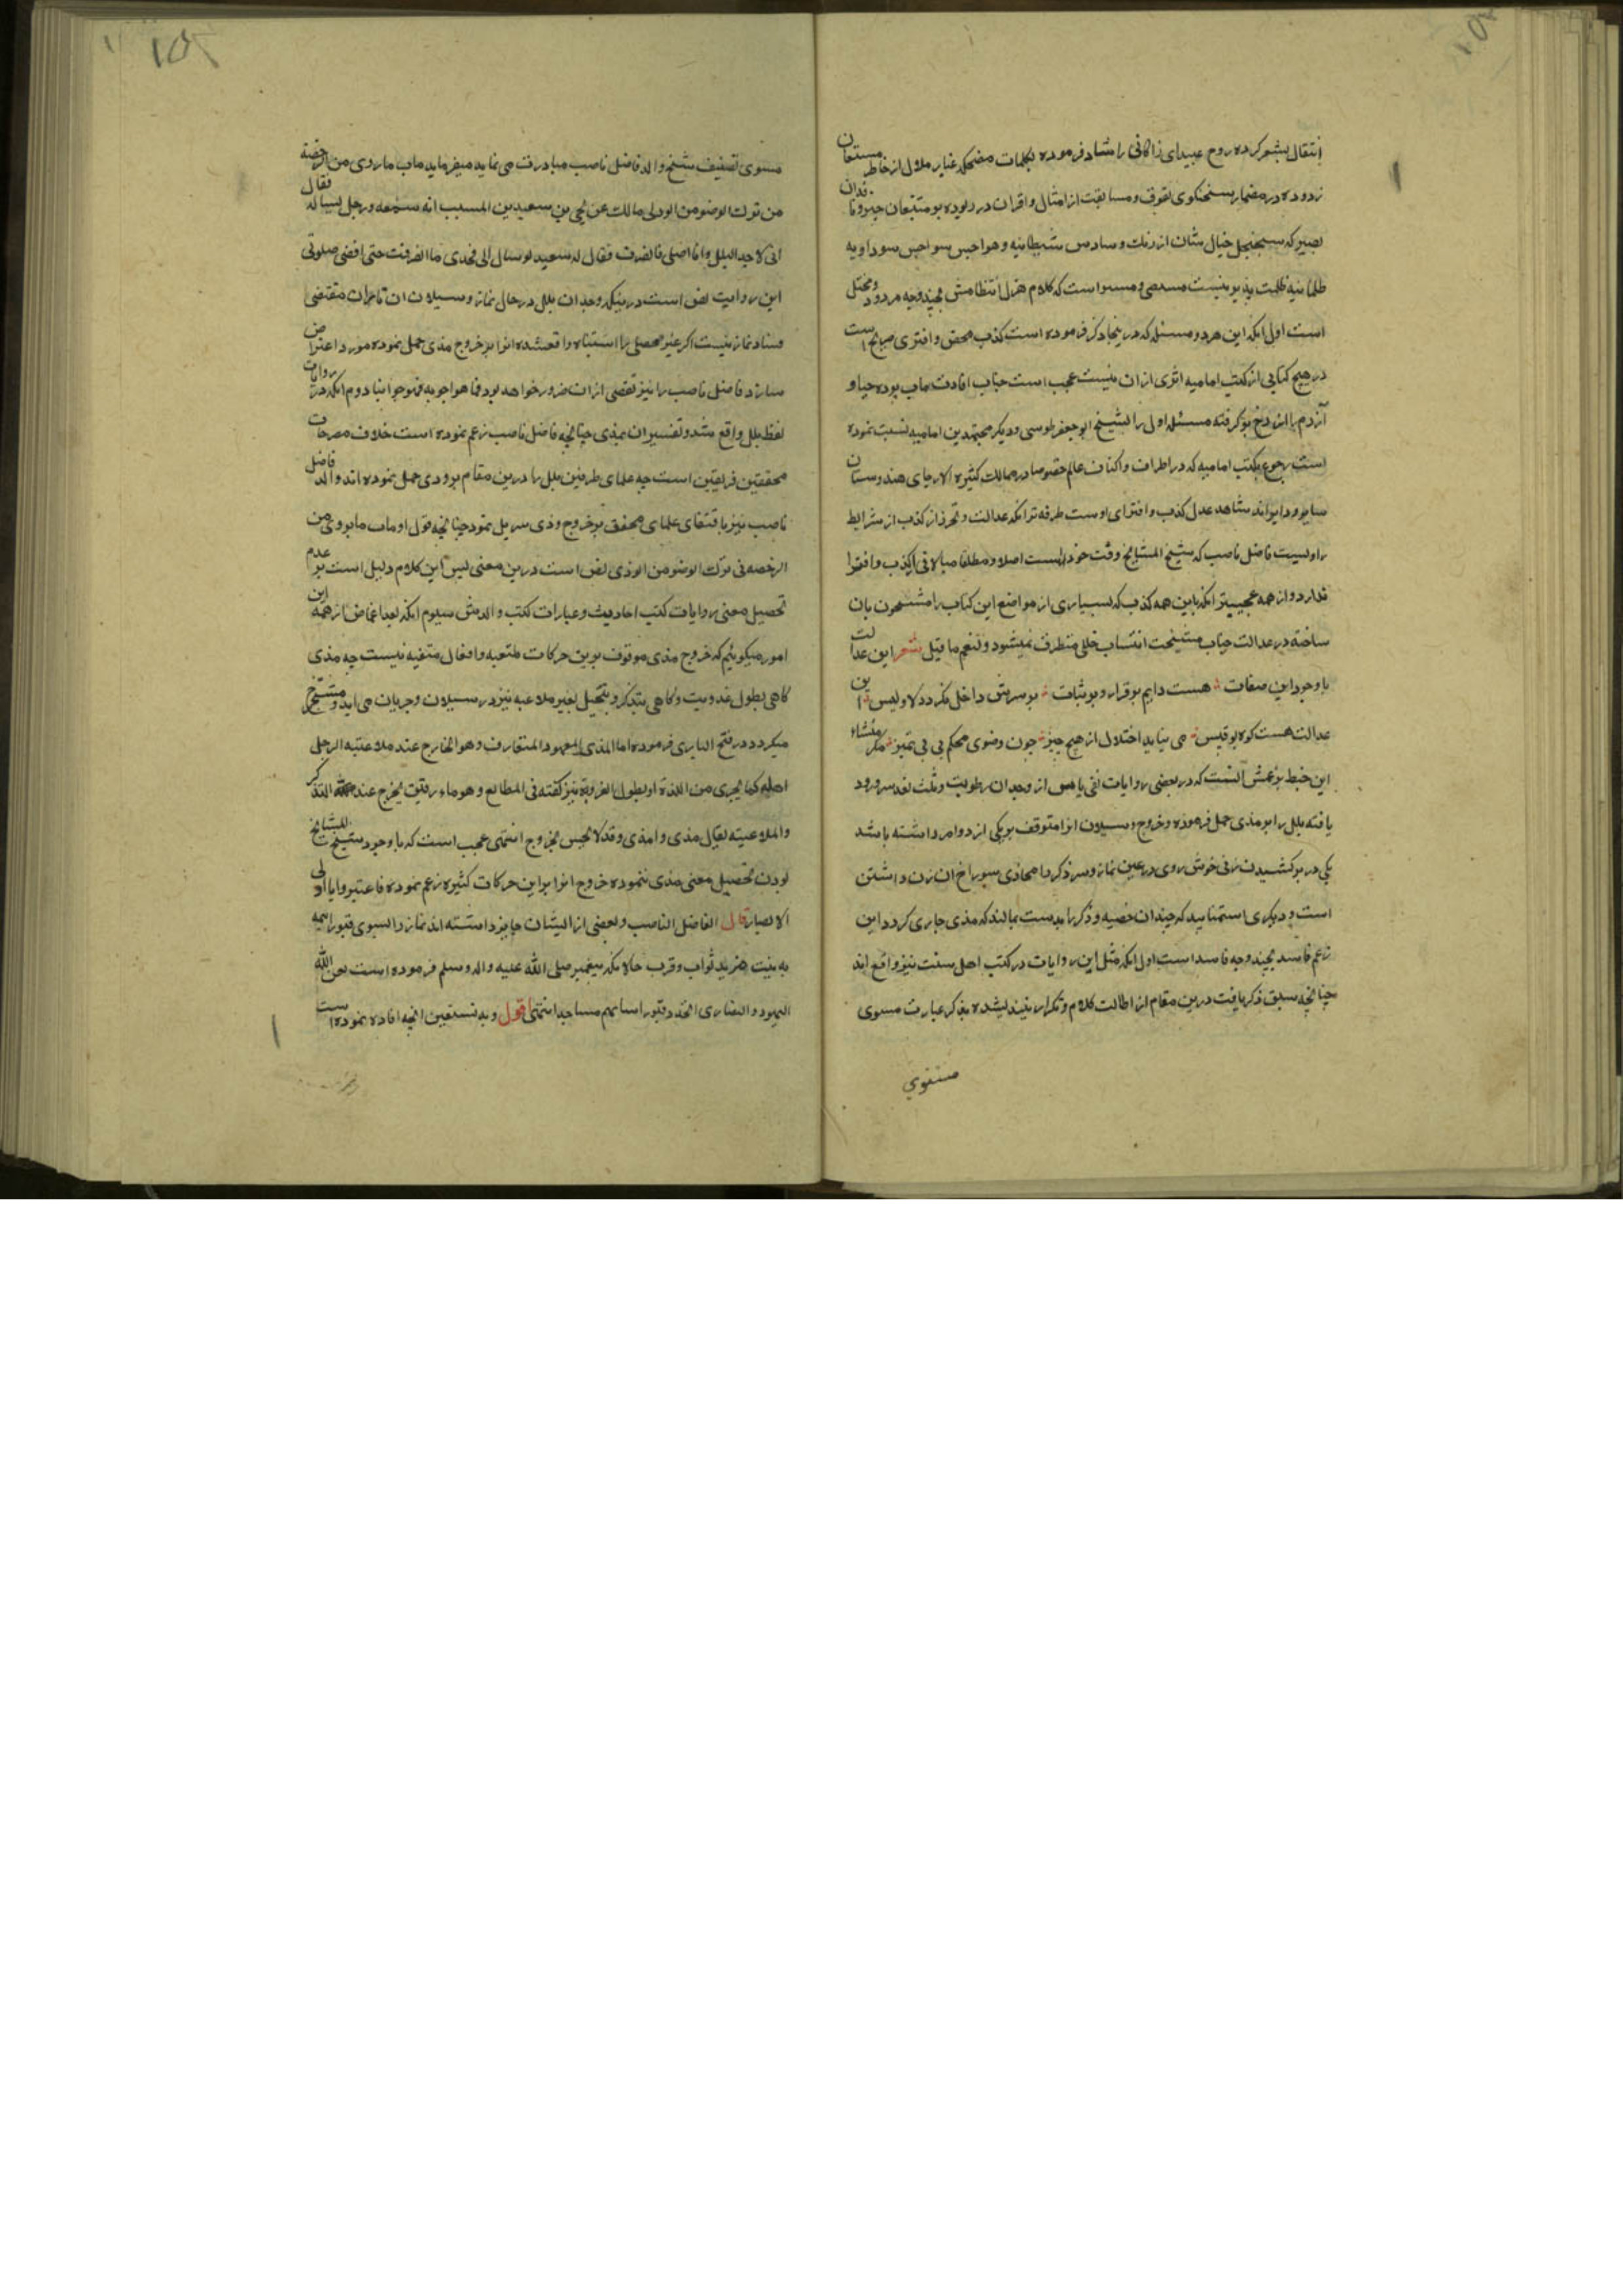 انتقال بشعر کرده روح عبیدای زاکانی را شاد فرموده بکلمات مضحکه غبار ملال از خاطر مستمعان
زدوده در مضمار سخنگوی تفوق و مسابقت از امثال و اقران در ربوده بر متتبعان خبیر و ناقدان
بصیر که سجنجل خیال شان از زنک وساوس شیطانیه و هواجس سوداویه
ظلمانیه ظلمت پذیر نیست است که کلام هزل انتظامش بچند وجه مردود و مختل
است اول انکه این هر دو مسئله که در ینجا ذکر فرموده است کذب محض و افتری صریح است
در هیچ کتابی از کتب امامیه اثری از ان نیست عجب است جناب افادت ماب پرده حیا و
آزرم را از رخ بر کرفته مسئله اولی را بشیخ ابو جعفر طوسی و دیکر مجتهدین امامیه نسبت نموده
است رجوع بکتب امامیه که در اطراف و اکناف عالم خصوصا در ممالک کثیرة الارجای هندوستان
سایر و دایر اند شاهد عدل کذب و افترای اوست طرفه تر انکه عدالت و تحرز از کذب از شرایط
راویست فاضل ناصب که شیخ المشایخ وقت خود است اصلا و مطلقا مبالاتی از کذب و افترا
ندارد و از همه عجیبتر انکه باین همه کذب که بسیاری از مواضع این کتاب را مشحون بان
ساخته در عدالت جناب مشیخت انتساب خللی متطرق نمیشود و لنعم ما قیل شعر این عدالت
با وجود این صفات هست دایم بر قرار و بر ثبات بر سرش داخل نکردد لا و لیس این
عدالت هست کوه بو قبیس می نیابد اختلال از هیچ چیز چون وضوی محکم بی بی تمیز مکر منشاء
این خبط بزعمش آنست که در بعضی روایات نفی باس از وجدان رطوبت و ثلث بعد سر ورود
یافته بلل را بر مذی حمل فرموده و خروج و سیلان انرا متوقف بر یکی از دو امر داشته باشد
یکی در بر کشیدن زنی خوش روی در عین نماز و سر ذکر را محاذی سوراخ ان زن داشتن
است و دیکری استمنا بید که چندان خصیه و ذکر را بدست بمالند که مذی جاری کردد این
زعم فاسد بچند وجه فاسد است اول انکه مثل این روایات در کتب اهل سنت نیز واقع اند
چنانچه سبق ذکر یافت درین مقام از اطالت کلام و تکرار نیندیشیده بذکر عبارت مسوی
مسوی
مسوی تصنیف شیخ والد فاضل ناصب مبادرت می نماید میفرماید باب ما روی من الرخصة
من ترک الوضو من الودی مالک عن یحیی بن سعید بن المسیب انه سمعه و رجل یساله فقال
انی لاجد البلل و انا اصلی فانصرف فقال له سعید لو سال الی فخدی ما انصرفت حتی اقضی صلوتی
این روایت نص است در ینکه وجدان بلل در حال نماز و سیلان ان تا بران مقتضی
فساد نماز نیست اکر غیر محصلی را اشتباه واقع شده انرا بر خروج مذی حمل نموده مورد اعتراض
سازد فاضل ناصب را نیز تفصی از ان ضرور خواهد بود فما هو اجوبه فهو جوابنا دوم انکه در روایات
لفظ بلل واقع شده و تفسیر ان بمذی چنانچه فاضل ناصب زعم نموده است خلاف مصرحات
محققین فریقین است چه علمای طرفین بلل را درین مقام بر ودی حمل نموده اند و والد فاضل
ناصب نیز باقتفای علمای محقق بر خروج وذی سر بل نمود چنانچه قول او باب ما یروی من
الرخصه فی ترک الوضو من الوذی نص است درین معنی لیس این کلام دلیل است بر عدم
تحصیل معنی روایات کتب احادیث و عبارات کتب والدش سیوم انکه بعد اغماض از همه این
امور میکوئیم که خروج مذی موقوف برین حرکات متعبه و افعال متعبه نیست چه مذی
کاهی بطول عذوبت و کاهی بتذکر و بتخیل بغیر ملاعبه نیز در سیلان و جریان می اید و مستخرج
میکردد در فتح الباری فرموده اما المذی المعهود المتعارف و هو الخارج عند ملاعبته الرجل
اهله کما یجری من اللذة او بطول العزوبة نیز کفته فی المطالع و هو ماء رقیق یخرج عند التذکر
و الملاعبته یقال مذی و امذی و قد لا یحس بخروج انتهی عجب است که با وجود شیخ المشایخ
بودن تحصیل معنی مذی ننموده خروج انرا براین حرکات کثیره زعم نموده فاعتبروا یا اولی
الابصار قال الفاضل الناصب و بعضی از ایشان جایز داشته اند نماز را بسوی قبور ایمه
به نیت مزید ثواب و قرب حالانکه پیغمبر صلی الله علیه واله وسلم فرموده است لعن الله
الیهود و النصاری اتخذ و قبور انبیائهم مساجدا انتهی اقول و به نستعین انچه افاده نموده است